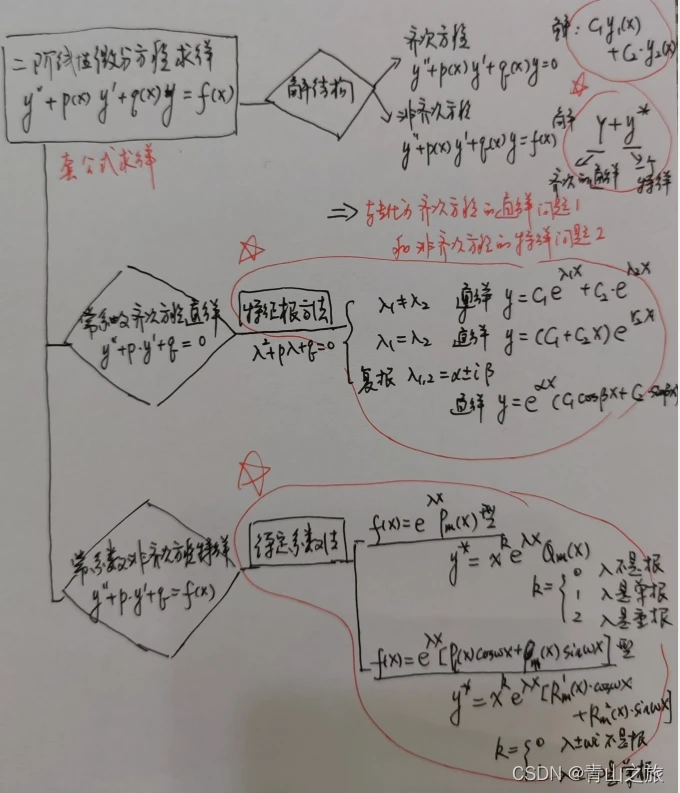 二阶线性微分方程求解
y″+p(x) y′+q(x) y = f(x)
套公式求解
解结构
齐次方程
y″+p(x) y′+q(x) y=0
通解: C₁y₁(x)
+C₂·y₂(x)
非齐次方程
y″+p(x) y′+q(x) y=f(x)
通解 Y+y*
齐次的通解 特解
⇒ 转化为 齐次方程的通解问题1
和 非齐次方程的特解问题2
常系数齐次方程通解
y″+p·y′+q=0
特征根方法
λ²+pλ+q=0
λ₁≠λ₂ 通解 y=C₁e^{λ₁x}+C₂·e^{λ₂x}
λ₁=λ₂ 通解 y=(C₁+C₂x)e
复根 λ₁,₂=α±iβ
通解 y=e^{αx}(C₁cosβx+C₂·sinβx)
常系数非齐次方程特解
y″+p·y′+q=f(x)
待定系数法
f(x)=e^{λx}Pm(x) 型
y*=x^k e^{λx}Qm(x)
k= 0 λ不是根
1 λ是单根
2 λ是重根
f(x)=e^{λx}[Pl(x)cosωx+Pm(x)sinωx] 型
y*=x^k e^{λx}[R¹m(x)·cosωx
+R²m(x)·sinωx]
k= 0 λ±ωi 不是根
CSDN @青山之旅